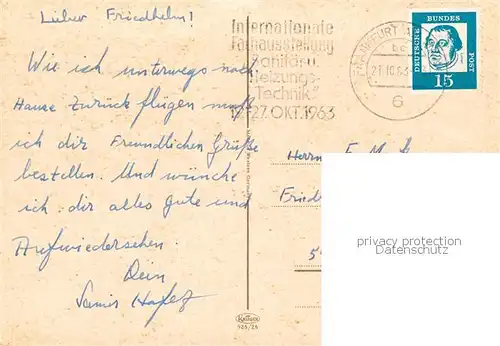 Lieber Friedhelm!
Wie ich unterwegs nach
Hause zurück flügen muß
ich dir Freundlichen Grüße
bestellen. Und wünche
ich dir alles gute und
Aufwiedersehen.
Dein
Internationale
Fachausstellung
Sanitär-u.
Heizungs-
Technik"
27.OKT.1963
FRANKFURT
6
DEUTSCHE BUNDES POST
15
Herrn
Fried
5
privacy protection
Datenschutz